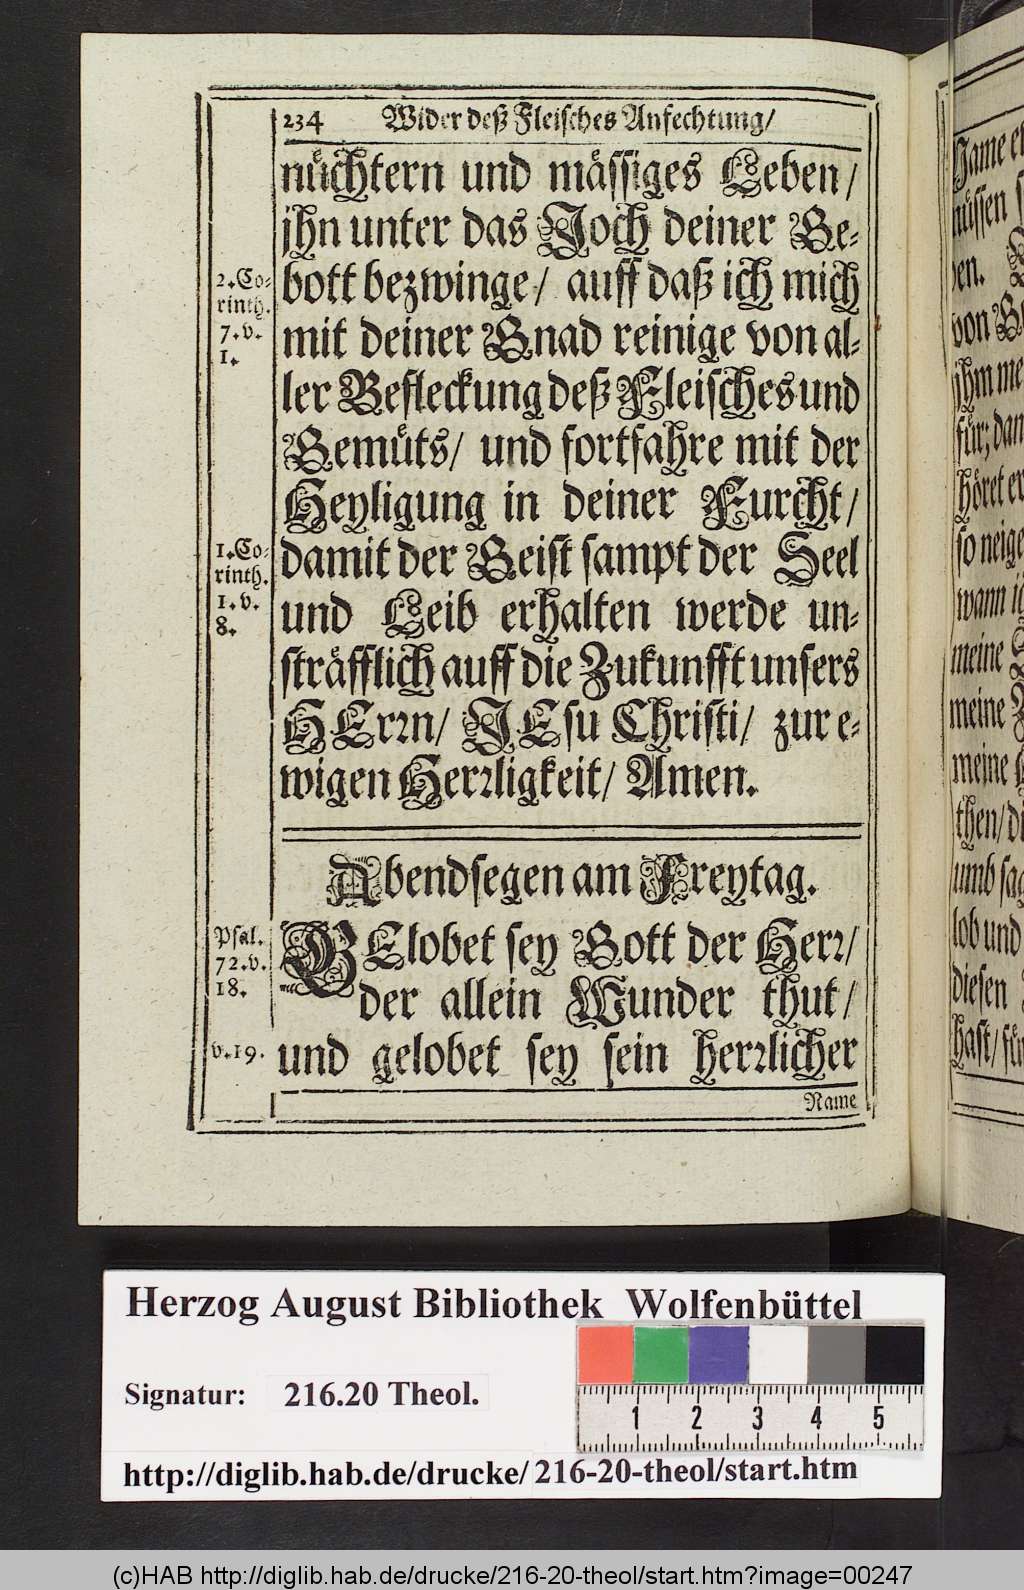 234 Wider deß Fleisches Anfechtung/
nüchtern und mässiges Leben/
jhn unter das Joch deiner Ge-
bott bezwinge/ auff daß ich mich
mit deiner Gnad reinige von al-
ler Befleckung deß Fleisches und
Gemüts/ und fortfahre mit der
Heyligung in deiner Furcht/
damit der Geist sampt der Seel
und Leib erhalten werde un-
sträfflich auff die Zukunfft unsers
HErrn/ JEsu Christi/ zur e-
wigen Herrligkeit/ Amen.
2. Co-
rinth.
7. v.
1.
1. Co-
rinth.
1. v.
8.
Abendsegen am Freytag.
GElobet sey Gott der Herr/
der allein Wunder thut/
und gelobet sey sein herrlicher
Name
Psal.
72. v.
18.
v. 19.
Herzog August Bibliothek Wolfenbüttel
Signatur: 216.20 Theol.
1 2 3 4 5
http://diglib.hab.de/drucke/ 216-20-theol/start.htm
(c)HAB http://diglib.hab.de/drucke/216-20-theol/start.htm?image=00247